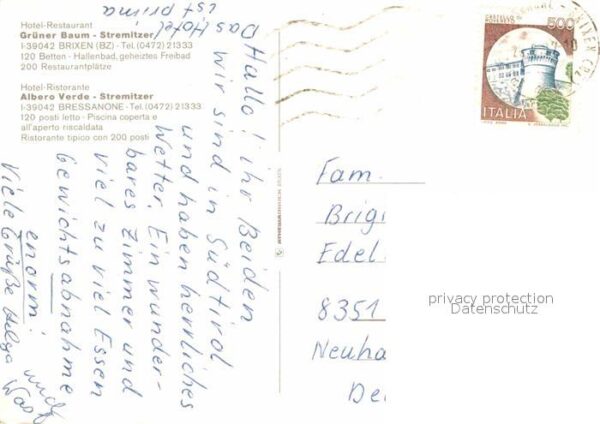 Hotel-Restaurant
Grüner Baum - Stremitzer
I-39042 BRIXEN (BZ) - Tel. (0472) 21333
120 Betten - Hallenbad, geheiztes Freibad
200 Restaurantplätze
Hotel-Ristorante
Albero Verde - Stremitzer
I-39042 BRESSANONE - Tel. (0472) 21333
120 posti letto - Piscina coperta e
all'aperto riscaldata
Ristorante tipico con 200 posti
Hallo! ihr Beiden
wir sind in Südtirol
und haben herrliches
Wetter. Ein wunder-
bares Zimmer und
viel zu viel Essen
Gewichtsabnahme
enorm!
Viele Grüße Helga und
Das Hotel
ist prima
500
ITALIA
Fam.
Brigi
Edel
8351
Neuha
De
privacy protection
Datenschutz